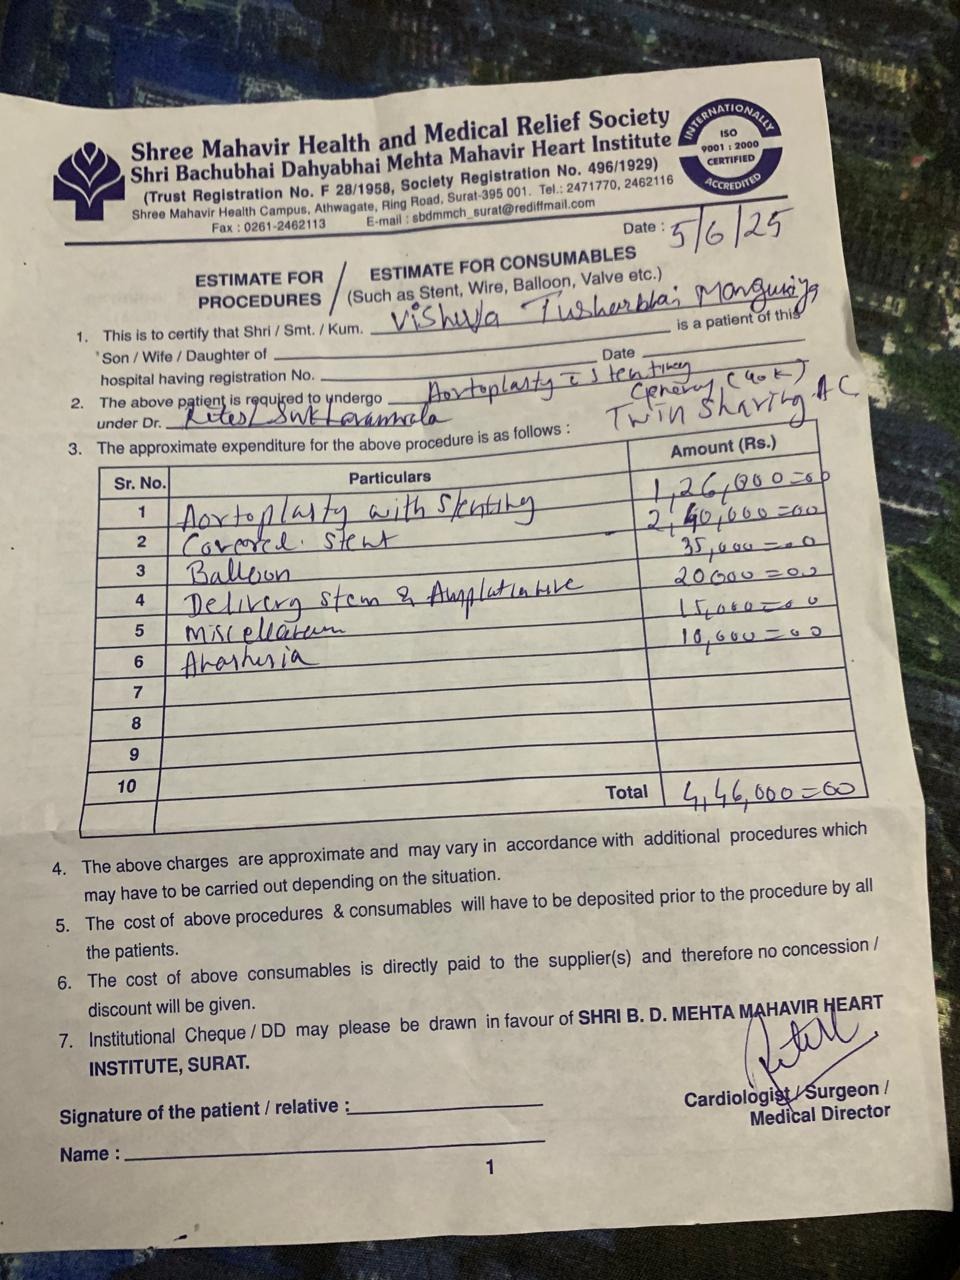 Shree Mahavir Health and Medical Relief Society
Shri Bachubhai Dahyabhai Mehta Mahavir Heart Institute
(Trust Registration No. F 28/1958, Society Registration No. 496/1929)
Shree Mahavir Health Campus, Athwagate, Ring Road, Surat-395 001. Tel.: 2471770, 2462116
Fax : 0261-2462113 E-mail : sbdmmch_surat@rediffmail.com
INTERNATIONALLY
ISO
9001 : 2000
CERTIFIED
ACCREDITED
Date : 5/6/25
ESTIMATE FOR PROCEDURES / ESTIMATE FOR CONSUMABLES
(Such as Stent, Wire, Balloon, Valve etc.)
1. This is to certify that Shri / Smt. / Kum. Vishwa Tusharbhai Mangukiya
Son / Wife / Daughter of is a patient of this
hospital having registration No. Date
2. The above patient is required to undergo Aortoplasty c stenting
General (90K)
under Dr. Twin Sharing AC
3. The approximate expenditure for the above procedure is as follows :
Sr. No. Particulars Amount (Rs.)
1 Aortoplasty with Stenting 1,26,000=00
2 Covered stent 2,40,000=00
3 Balloon 35,000=00
4 Delivery stem & 20000=00
5 15,000=00
6 10,000=00
7
8
9
10
Total 4,46,000=00
4. The above charges are approximate and may vary in accordance with additional procedures which
may have to be carried out depending on the situation.
5. The cost of above procedures & consumables will have to be deposited prior to the procedure by all
the patients.
6. The cost of above consumables is directly paid to the supplier(s) and therefore no concession /
discount will be given.
7. Institutional Cheque / DD may please be drawn in favour of SHRI B. D. MEHTA MAHAVIR HEART
INSTITUTE, SURAT.
Signature of the patient / relative :
Cardiologist / Surgeon /
Medical Director
Name :
1